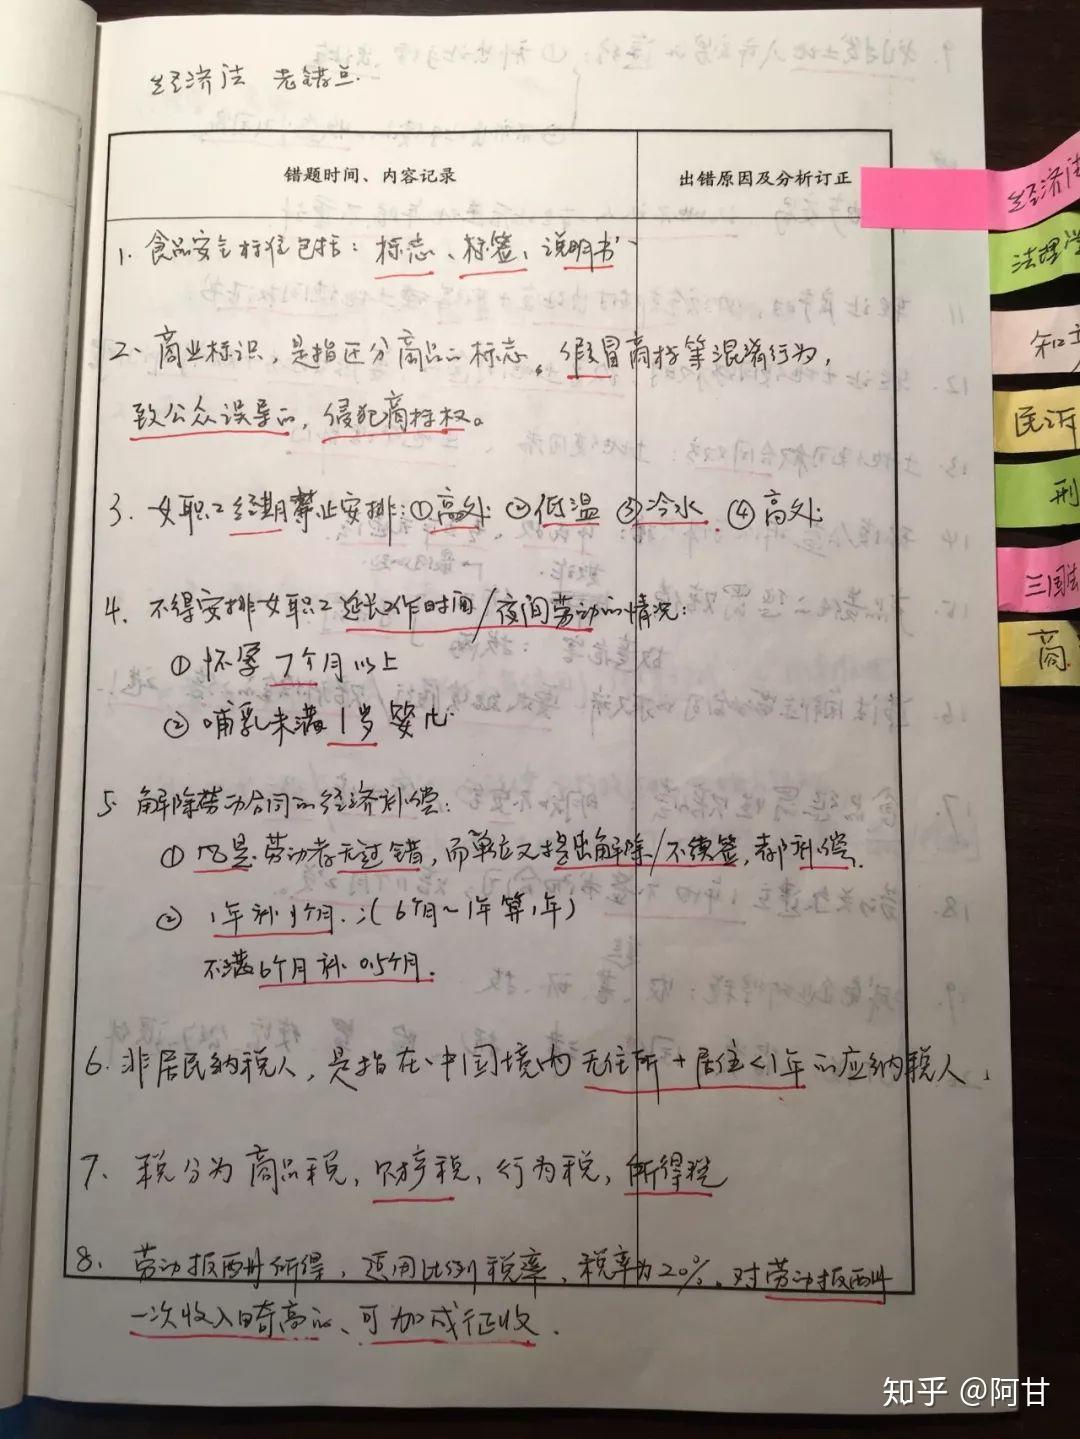 经济法 老错点.
错题时间、内容记录
出错原因及分析订正
1. 食品安全标准包括：标志、标签、说明书
2、商业标识，是指区分商品的标志。假冒商标等混淆行为，
致公众误导的，侵犯商标权。
3. 女职工经期禁止安排：①高处 ②低温 ③冷水 ④高处
4. 不得安排女职工延长工作时间/夜间劳动的情况：
① 怀孕7个月以上
② 哺乳未满1岁婴儿
5. 解除劳动合同的经济补偿：
① 凡是劳动者无过错，而单位又提出解除/不续签，都补偿.
② 1年补1个月.：(6个月~1年算1年)
不满6个月补0.5个月.
6. 非居民纳税人，是指在中国境内无住所+居住<1年的应纳税人，
7、税分为商品税，财产税，行为税，所得税
8. 劳动报酬所得，适用比例税率，税率为20%。对劳动报酬
一次收入畸高的、可加成征收.
经济法
法理学
知
民诉
刑
三国法
商
知乎 @阿甘